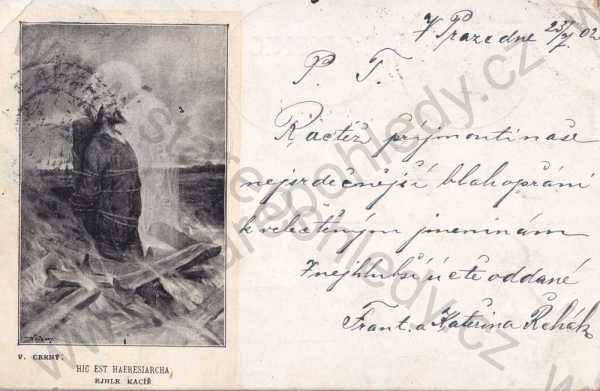 V Praze dne 23/7 02
P. T.
Račtěž přijmouti naše
nejsrdečnější blahopřání
k velectěným jmeninám
V nejhlubší úctě oddané
Frant. a Kateřina Řehák
V. ČERNÝ.
HIC EST HAERESIARCHA
EJHLE KACÍŘ
staré
pohledy.cz